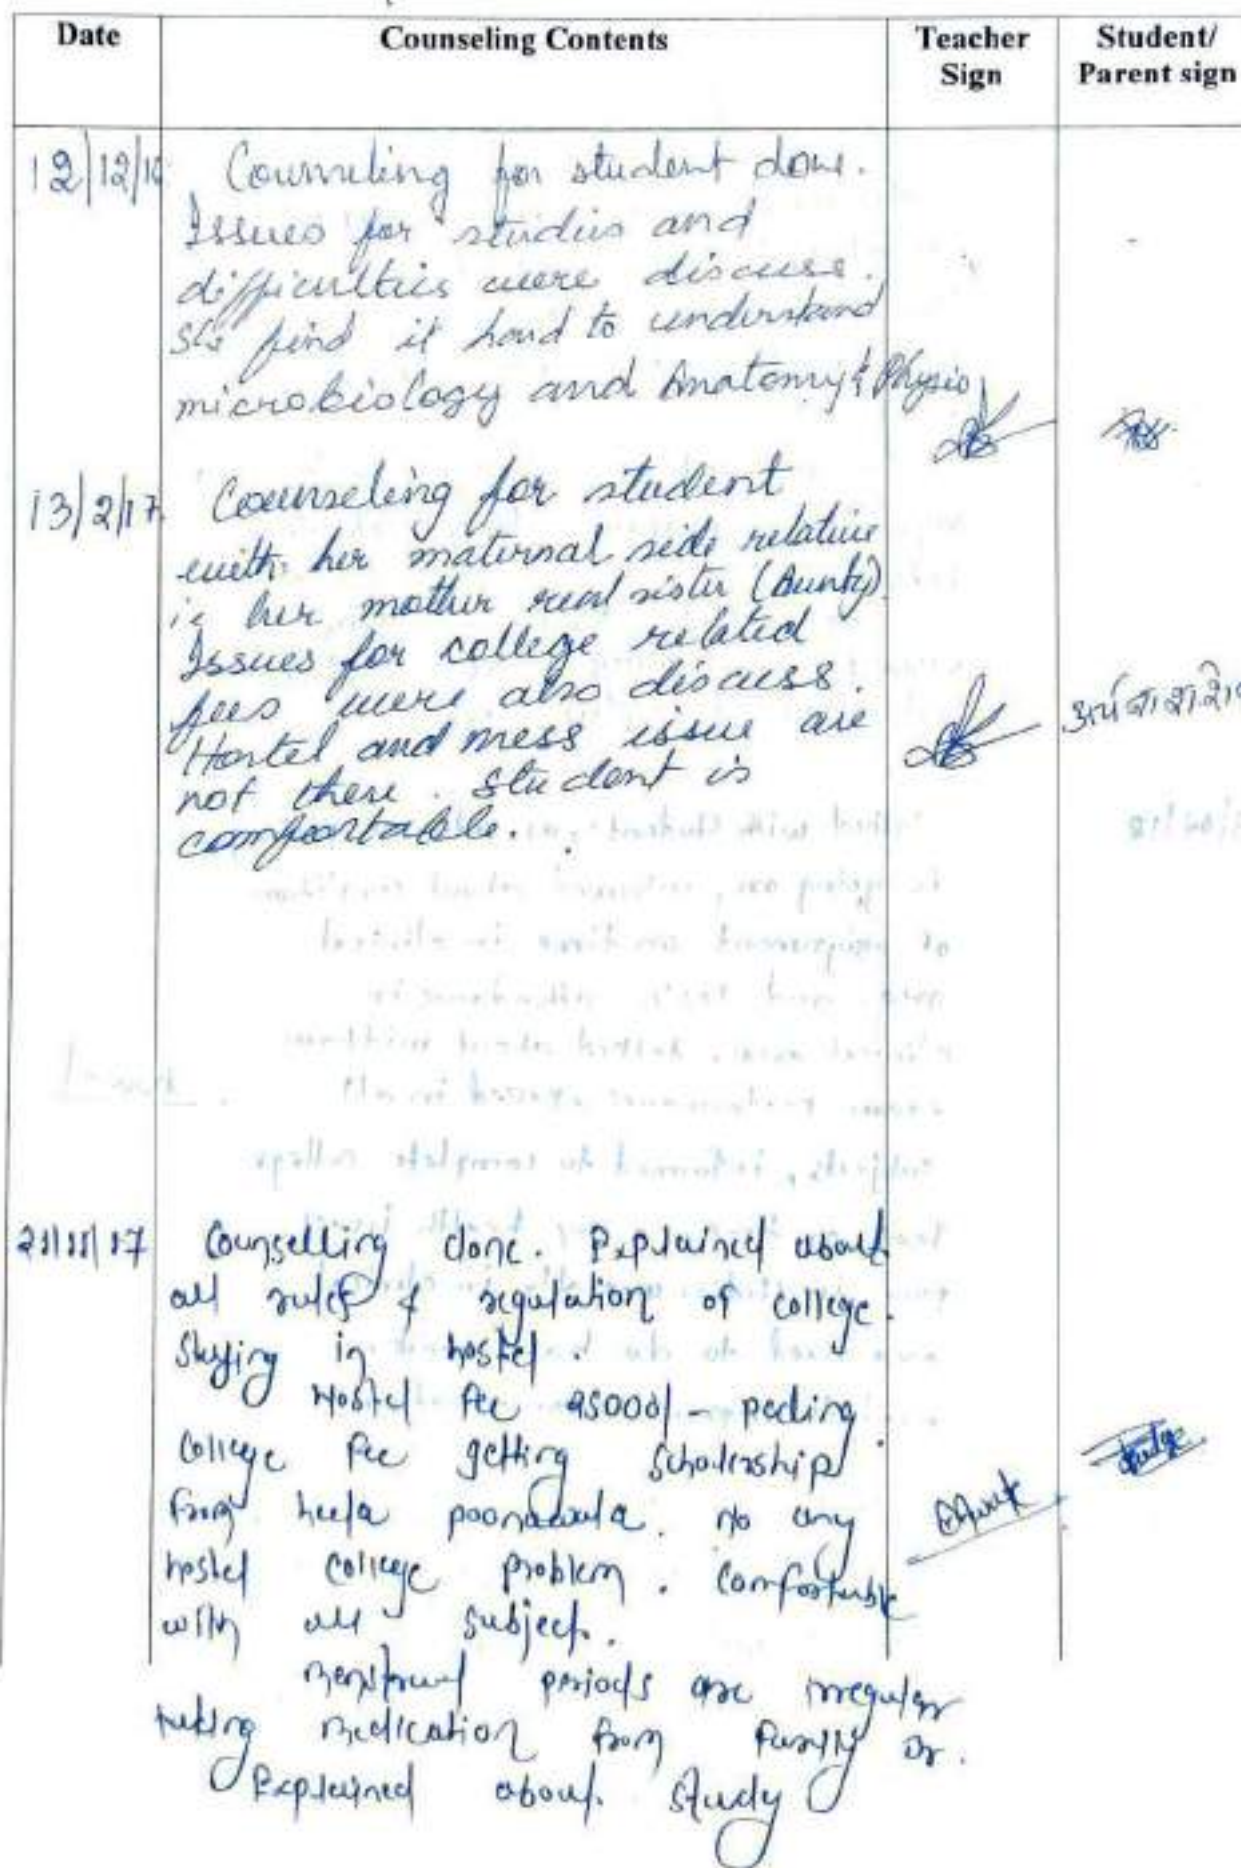 Date Counseling Contents Teacher Sign Student/ Parent sign
12/12/16 Counseling for student done.
Issues for studies and
difficulties were discuss.
She find it hard to understand
microbiology and Anatomy & Physio
13/2/17 Counseling for student
with her maternal side relative
ie her mother real sister (Aunty)
Issues for college related
fees were also discuss.
Hostel and mess issue are
not there. Student is
comfortable.
21/11/17 Counselling done. Explained about
all rules & regulation of college.
Staying in hostel.
Hostel fee 25000/- peding.
College fee getting Scholership
from poonawala. no any
hostel college problem. Comfortable
with all subject.
menstrual periods are irregular
taking medication from family Dr.
Explained about study